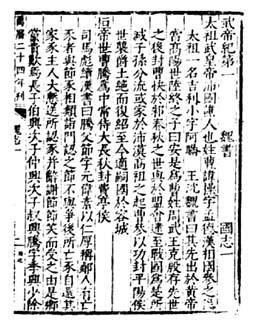 武帝紀第一　魏書　國志一
太祖武皇帝沛國譙人也姓曹諱操字孟德漢相國參之後
太祖一名吉利小字阿瞞　王沈魏書曰其先出於黃帝
當高陽世陸終之子曰安是為曹姓周武王克殷存先世
之後封曹俠於邾春秋之世與於盟會逮至戰國為楚所
滅子孫分流或家於沛漢高祖之起曹參以功封平陽侯
世襲爵土絕而復紹至今適嗣國於容城
桓帝世曹騰為中常侍大長秋封費亭侯
司馬彪續漢書曰騰父節字元偉素以仁厚稱鄰人有亡
豕者與節豕相類詣門認之節不與爭後所亡豕自還其
家豕主人大慚送所認豕并辭謝節節笑而受之由是鄉
黨貴歎焉長子伯興次子仲興次子叔興騰字季興少除
二十四年刊　魏志一　一